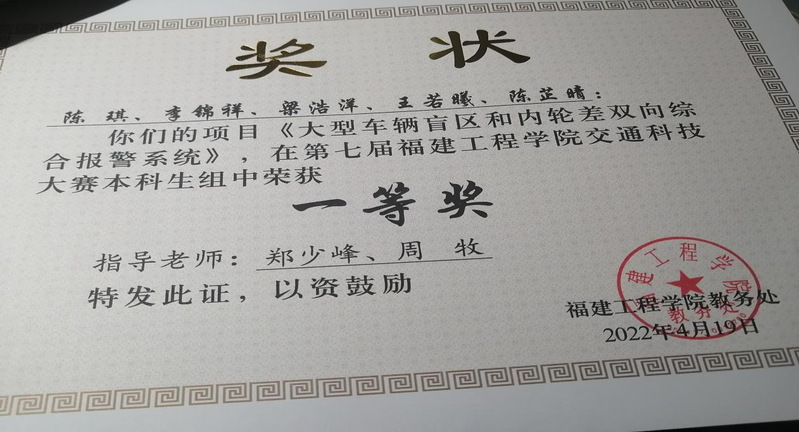 奖 状
陈 琪、李锦祥、梁浩洋、王若曦、陈芷晴：
你们的项目《大型车辆盲区和内轮差双向综
合报警系统》，在第七届福建工程学院交通科技
大赛本科生组中荣获
一等奖
指导老师：郑少峰、周 牧
特发此证，以资鼓励
福建工程学院教务处
2022年4月19日
建工程学院
教务处